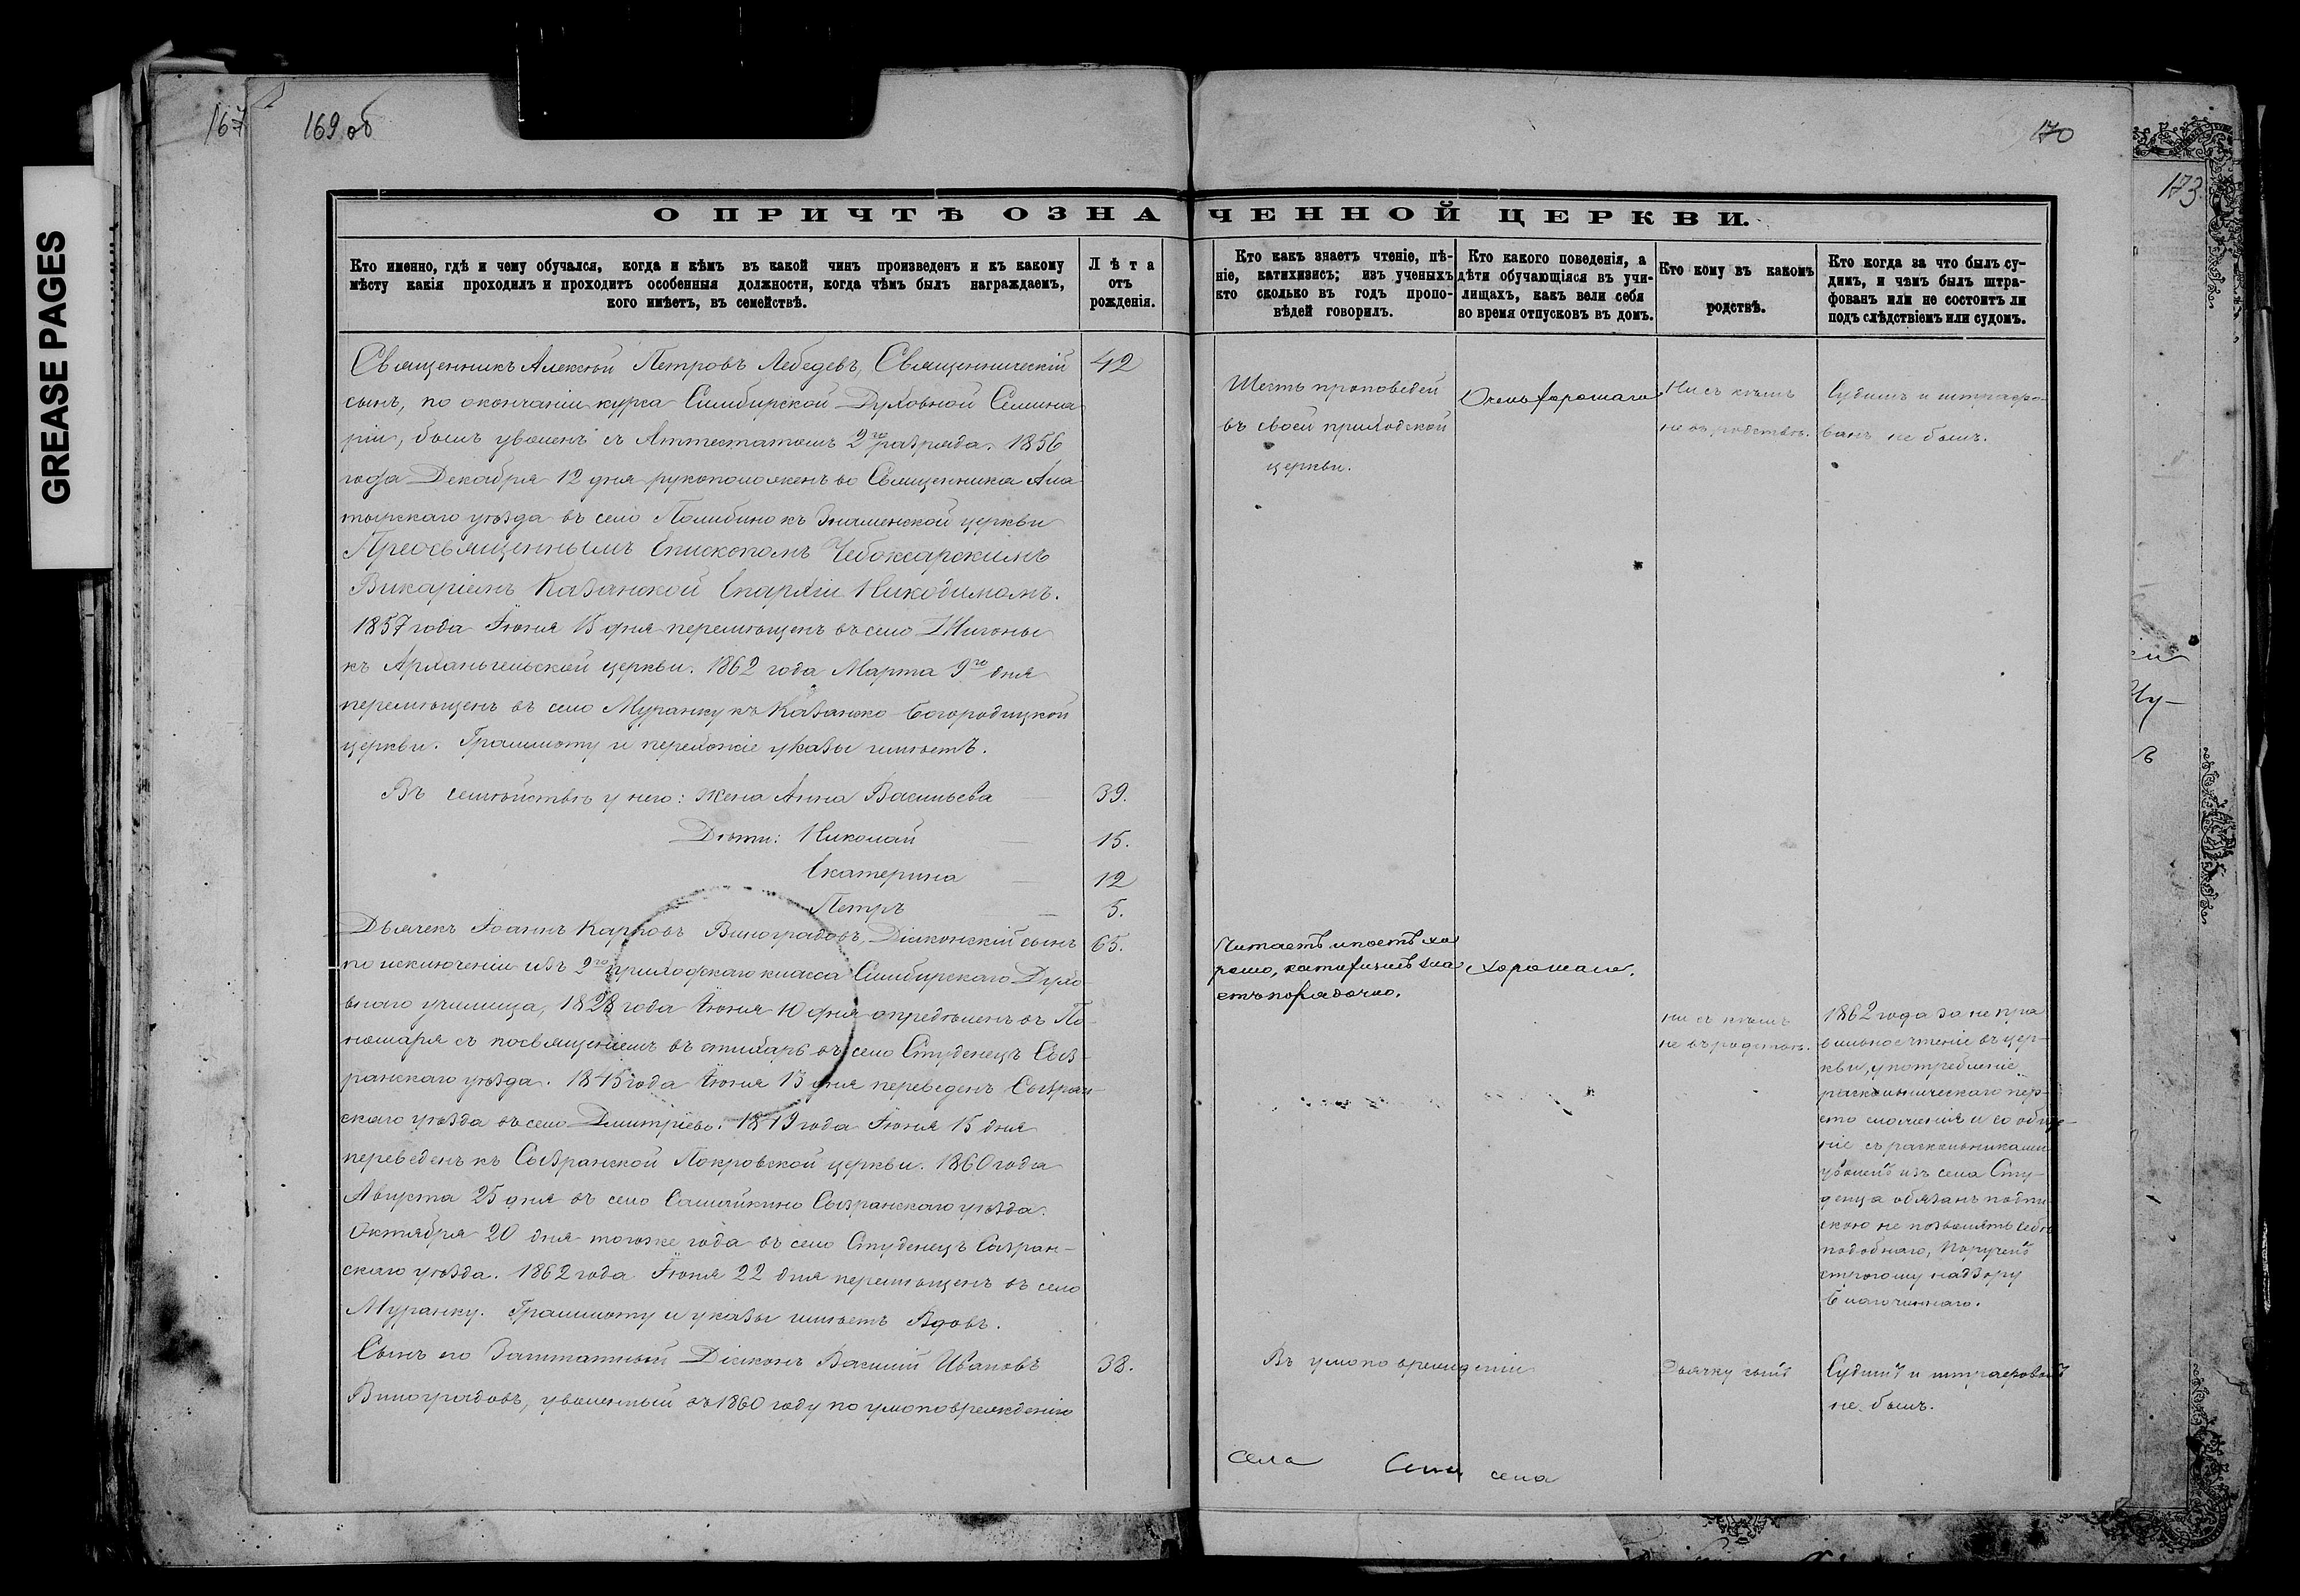 GREASE PAGES
167
169 об
170
173
О ПРИЧТѢ ОЗНАЧЕННОЙ ЦЕРКВИ.
Кто именно, гдѣ и чему обучался, когда и кѣмъ въ какой чинъ произведенъ и къ какому
мѣсту какія проходилъ и проходитъ особенныя должности, когда чѣмъ былъ награждаемъ,
кого имѣетъ, въ семействѣ.
Лѣта
отъ
рожденія.
Кто какъ знаетъ чтеніе, пѣ-
ніе, катихизисъ; изъ ученыхъ
кто сколько въ годъ пропо-
вѣдей говорилъ.
Кто какого поведенія, а
дѣти обучающіяся въ учи-
лищахъ, какъ вели себя
во время отпусковъ въ домъ.
Кто кому въ какомъ
родствѣ.
Кто когда за что былъ су-
димъ, и чѣмъ былъ штра-
фованъ или не состоитъ ли
подъ слѣдствіемъ или судомъ.
Священникъ Алексѣй Петровъ Лебедевъ, Священническій
сынъ, по окончаніи курса Симбирской Духовной Семина
ріи, былъ уволенъ съ Аттестатомъ 2го разряда. 1856
года Декабря 12 дня рукоположенъ во Священника Ала
тырскаго уѣзда въ село Полибино къ Знаменской церкви
Преосвященнымъ Епископомъ Чебоксарскимъ
Викаріемъ Казанской Епархіи Никодимомъ.
1857 года Іюня 15 дня перемѣщенъ въ село Жигоны
къ Архангельской церкви. 1862 года Марта 9го дня
перемѣщенъ въ село Муранку къ Казанско-Богородицкой
церкви. Граммоту и перехожіе указы имѣетъ.
Въ семѣйствѣ у него: жена Анна Васильева
Дѣти: Николай
Екатерина
Петръ
42
39.
15.
12
5.
Шесть проповедей
въ своей приходской
церкви.
Очень хорошаго
Ни съ кѣмъ
не въ родствѣ.
Судимъ и штрафо-
ванъ не былъ.
Дьячекъ Іоаннъ Карповъ Виноградовъ, Діаконскій сынъ
по исключеніи изъ 2го приходскаго класса Симбирскаго Духо-
внаго училища, 1828 года Іюня 10 дня опредѣленъ въ По-
номаря съ посвященіемъ въ стихарь въ село Студенецъ Сыз-
ранскаго уѣзда. 1845 года Іюня 13 дня переведенъ Сызран-
скаго уѣзда въ село Дмитріево. 1849 года Іюня 15 дня
переведенъ къ Сызранской Покровской церкви. 1860 года
Августа 25 дня въ село Самайкино Сызранскаго уѣзда.
Октября 20 дня тогоже года въ село Студенецъ Сызран-
скаго уѣзда. 1862 года Іюня 22 дня перемѣщенъ въ село
Муранку. Граммоту и указы имѣетъ Вдовъ.
65.
Читаетъ и поетъ хо
рошо, катихизисъ зна
етъ порядочно.
хорошаго.
ни съ кѣмъ
не въ родствѣ.
1862 года за не пра
вильное чтеніе въ цер-
кви, употребленіе
раскольническаго пер-
сто сложенія и со обще-
ніе съ раскольниками
уволенъ изъ села Сту-
денца обязанъ подпи-
скою не позволять себѣ
подобнаго, порученъ
строгому надзору
Благочиннаго.
Сынъ его Заштатный Діаконъ Василий Ивановъ
Виноградовъ, уволенный въ 1860 году по умоповрежденію
38.
Въ умоповрежденіи
Дьячку сынъ
Судимъ и штрафованъ
не былъ.
села
села